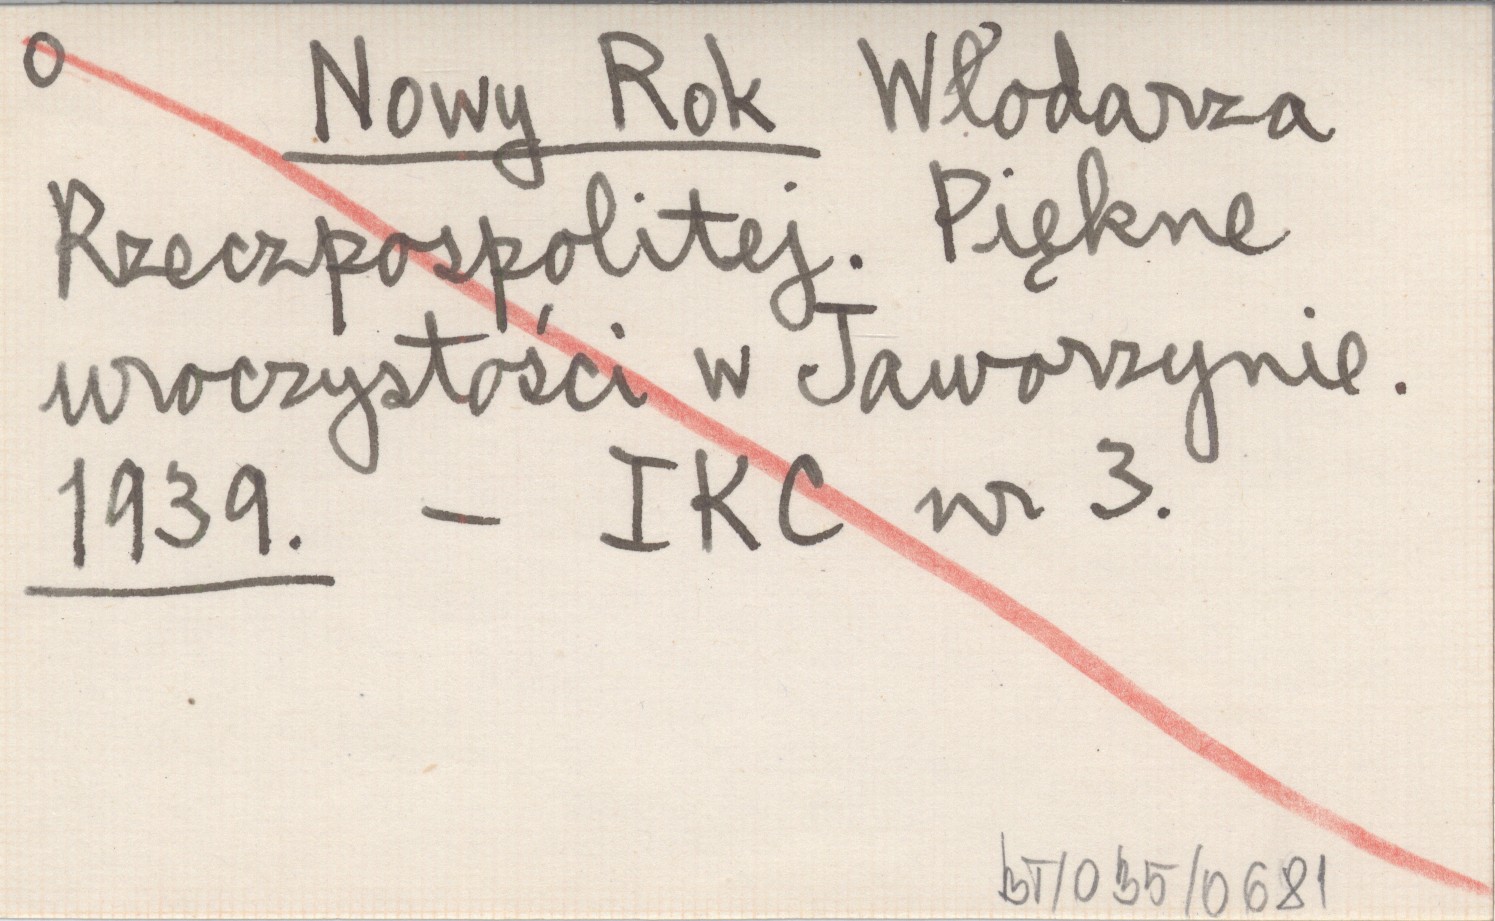 o Nowy Rok Włodarza
Rzeczpospolitej. Piękne
uroczystości w Jaworzynie.
1939. – IKC nr 3.
BT/035/0681